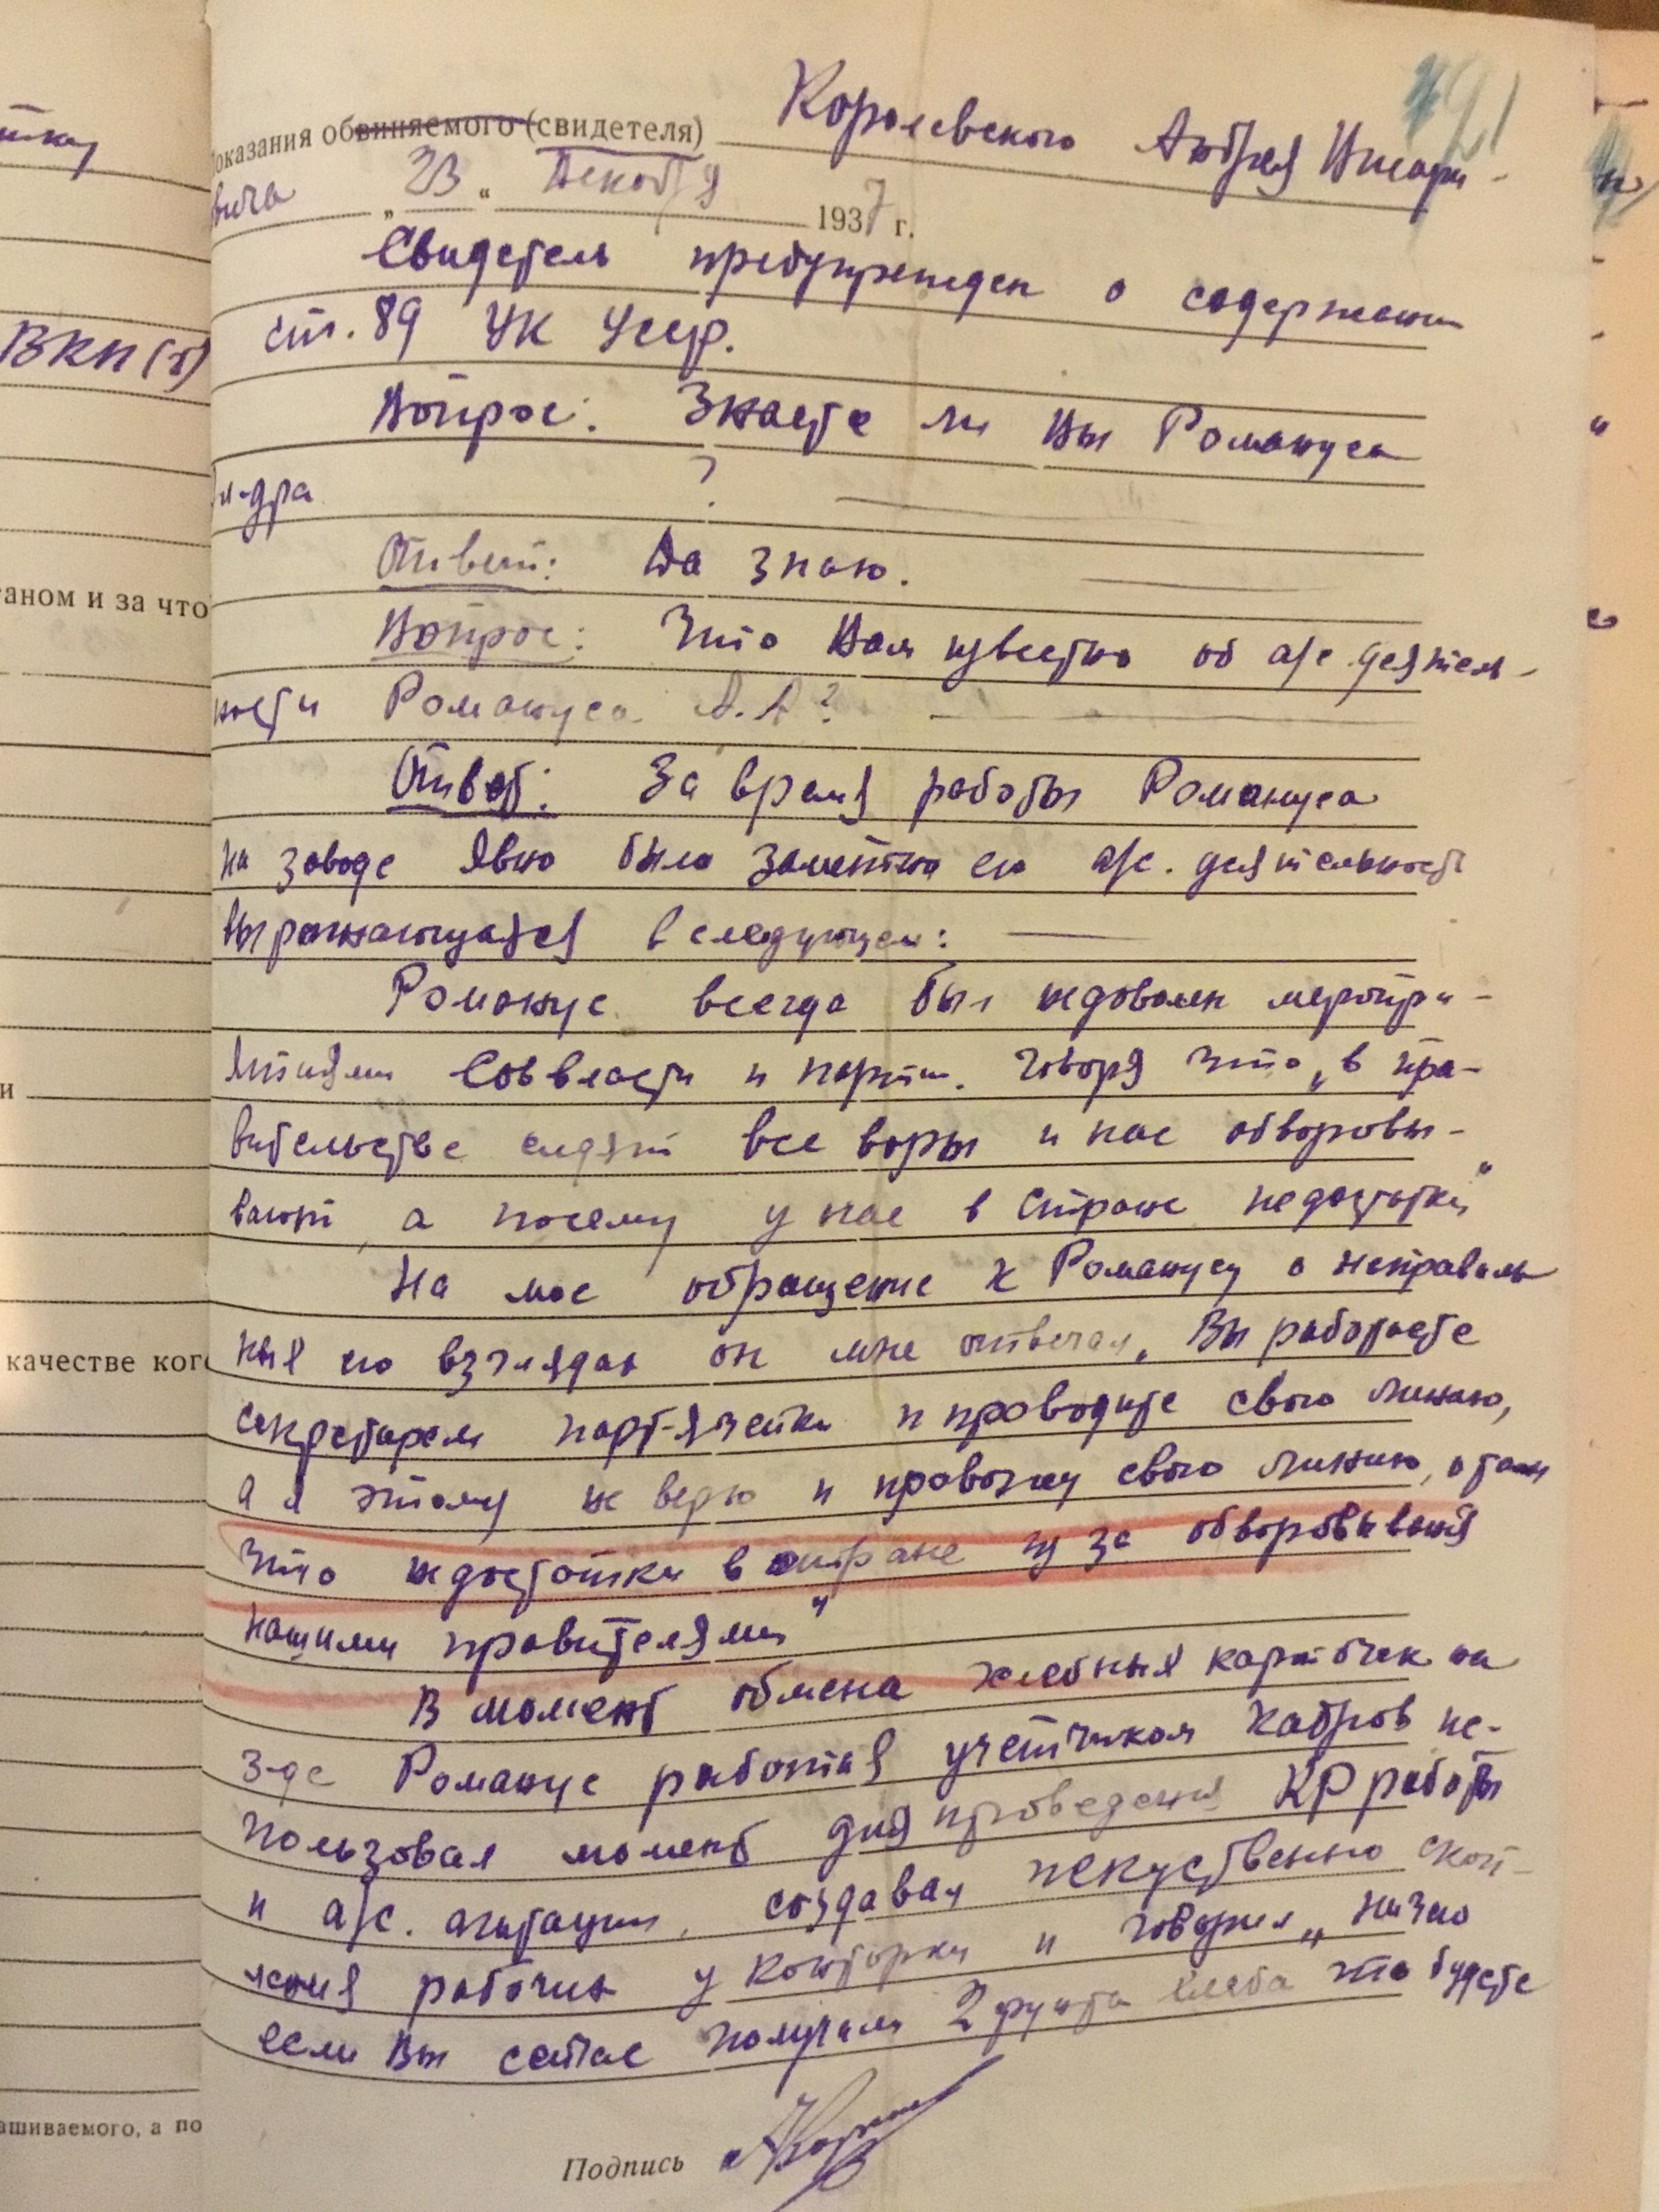 91
Показания обвиняемого (свидетеля) Королевского Андрея Инари-
вича „23“ Декабря 1937 г.
Свидетель предупрежден о содержании
ст. 89 УК Усср.
Вопрос: Знаете ли Вы Романуса
а-дра ?
Ответ: Да знаю.
Вопрос: Что Вам известно об а/с деятель-
ности Романуса А.А?
Ответ: За время работы Романуса
на заводе явно было заметно его а/с. деятельность
выражающаяся в следующем:
Романус всегда был недоволен меропри-
ятиями Соввласти и партии. говоря что „в пра-
вительстве сидят все воры и нас обворовы-
вают, а посему у нас в стране недостатки“
На мое обращение к Романусу о неправиль
ных его взглядах он мне отвечал „Вы работаете
секретарем парт-ячейки и проводите свою линию,
а я этому не верю и провожу свою линию, о том
что недостатки в стране из за обворовывания
нашими правителями“
В момент обмена хлебных карточек на
з-де Романус работая учетчиком кадров ис-
пользовал момент для проведения КР работы
и а/с. агитации, создавал искуственно скоп-
ления рабочих у конторки и говорил „ничего
если Вы сейчас получали 2 фунта хлеба то будете
Подпись
тку
ВКП(б)
ганом и за что
и
качестве ког
ашиваемого, а по